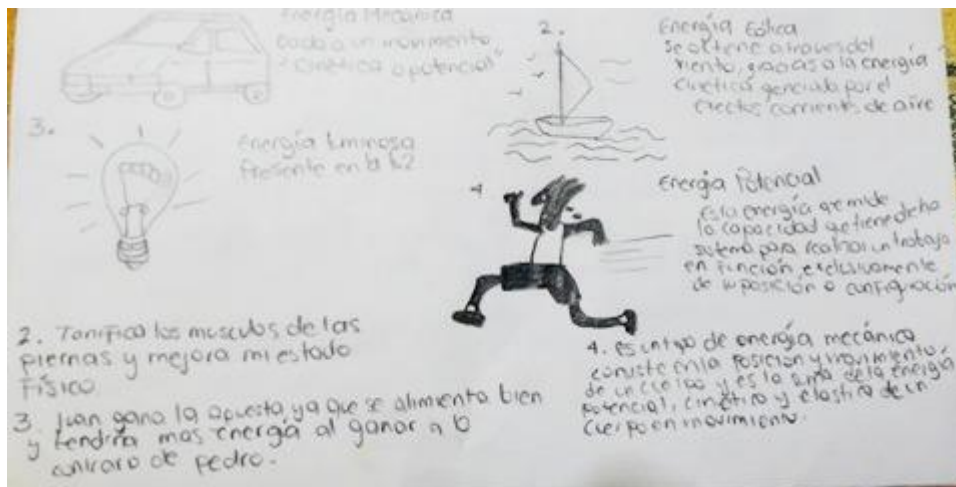 Energía Mecanica
dado a un movimento
"Cinética o potencial"
2.
Energía Eólica
se obtiene a traves del
viento, gracias a la energía
cinética generada por el
efectos corrientes de aire
3.
Energía luminosa
Presente en la luz
4
Energía Potencial
Es la energía que mide
la capacidad que tiene dicho
sistema para realizar un trabajo
en función exclusivamente
de su posición o configuración
2. Tonifica los musculos de las
piernas y mejora mi estado
Físico
3. Juan gano la apuesta ya que se alimenta bien
y tendría mas energía al ganar a lo
contraro de pedro.
4. es un tipo de energía mecánica
consiste en la posición y movimiento,
de un cuerpo y es la suma de la energía
potencial, cinética y elastica de un
cuerpo en movimiento.